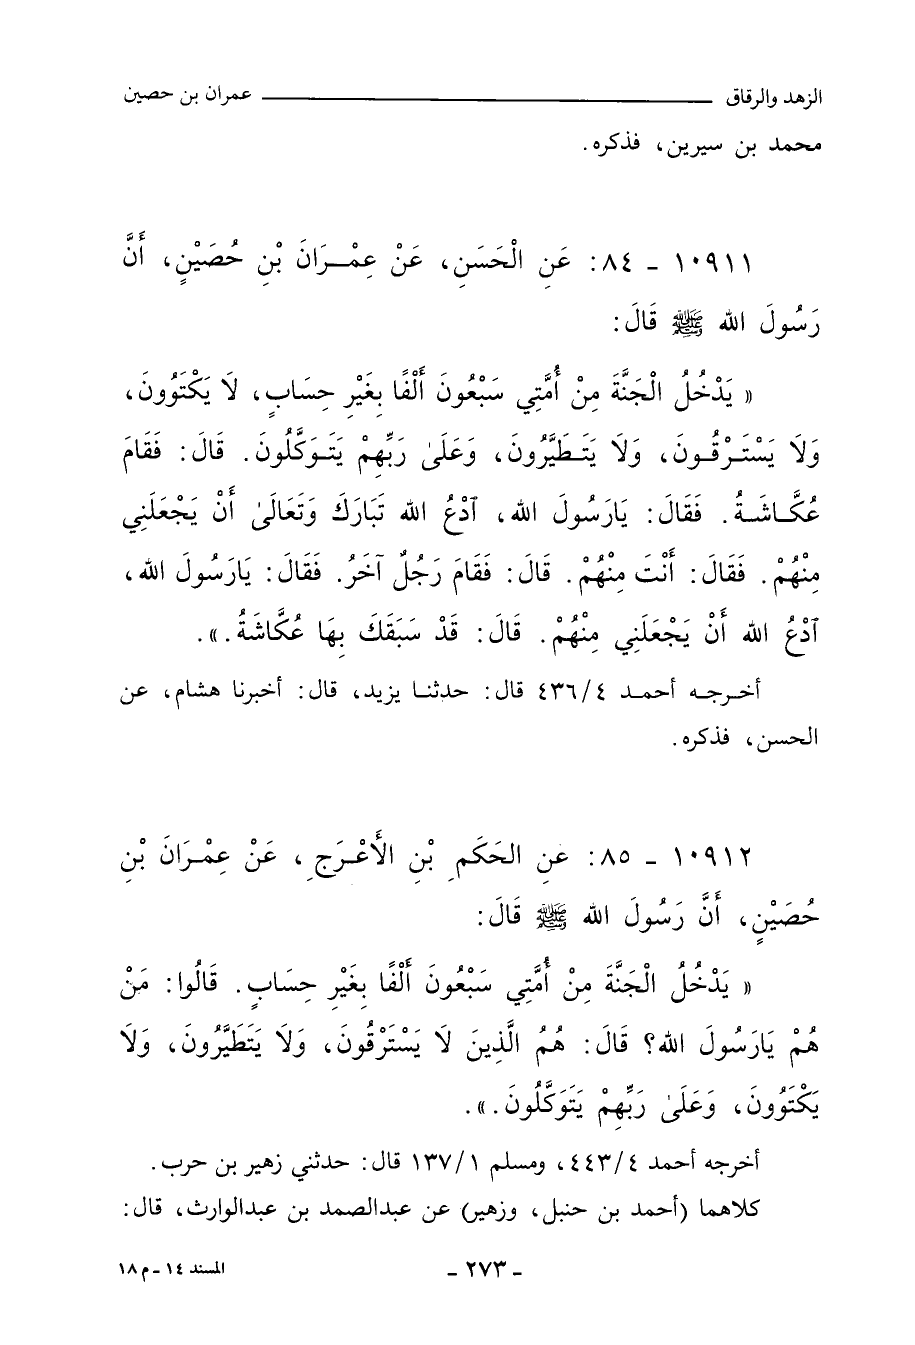 الزهد والرقاق ــــــــــــــــــــ عمران بن حصين
محمد بن سيرين، فذكره.
١٠٩١١ ـ ٨٤: عَنِ الْحَسَنِ، عَنْ عِمْـرَانَ بْنِ حُصَيْنٍ، أَنَّ
رَسُولَ الله ﷺ قَالَ:
« يَدْخُلُ الْجَنَّةَ مِنْ أُمَّتِي سَبْعُونَ أَلْفًا بِغَيْرِ حِسَابٍ، لَا يَكْتَوُونَ،
وَلَا يَسْتَـرْقُـونَ، وَلَا يَتَـطَيَّرُونَ، وَعَلَىٰ رَبِّهِمْ يَتَـوَكَّلُونَ. قَالَ: فَقَامَ
عُكَّـاشَـةُ. فَقَالَ: يَارَسُولَ الله، ٱدْعُ الله تَبَارَكَ وَتَعَالَىٰ أَنْ يَجْعَلَنِي
مِنْهُمْ. فَقَالَ: أَنْتَ مِنْهُمْ. قَالَ: فَقَامَ رَجُلٌ آخَرُ. فَقَالَ: يَارَسُولَ الله،
ٱدْعُ الله أَنْ يَجْعَلَنِي مِنْهُمْ. قَالَ: قَدْ سَبَقَكَ بِهَا عُكَّاشَةُ.».
أخـرجـه أحمـد ٤٣٦/٤ قال: حدثنـا يزيد، قال: أخبرنا هشام، عن
الحسن، فذكره.
١٠٩١٢ ـ ٨٥: عَنِ الحَكَمِ بْنِ الأَعْـرَجِ، عَنْ عِمْـرَانَ بْنِ
حُصَيْنٍ، أَنَّ رَسُولَ الله ﷺ قَالَ:
« يَدْخُلُ الْجَنَّةَ مِنْ أُمَّتِي سَبْعُونَ أَلْفًا بِغَيْرِ حِسَابٍ. قَالُوا: مَنْ
هُمْ يَارَسُولَ الله؟ قَالَ: هُمُ الَّذِينَ لَا يَسْتَرْقُونَ، وَلَا يَتَطَيَّرُونَ، وَلَا
يَكْتَوُونَ، وَعَلَىٰ رَبِّهِمْ يَتَوَكَّلُونَ.».
أخرجه أحمد ٤٤٣/٤، ومسلم ١٣٧/١ قال: حدثني زهير بن حرب.
كلاهما (أحمد بن حنبل، وزهير) عن عبدالصمد بن عبدالوارث، قال:
ـ ٢٧٣ ـ المسند ١٤ ـ م ١٨